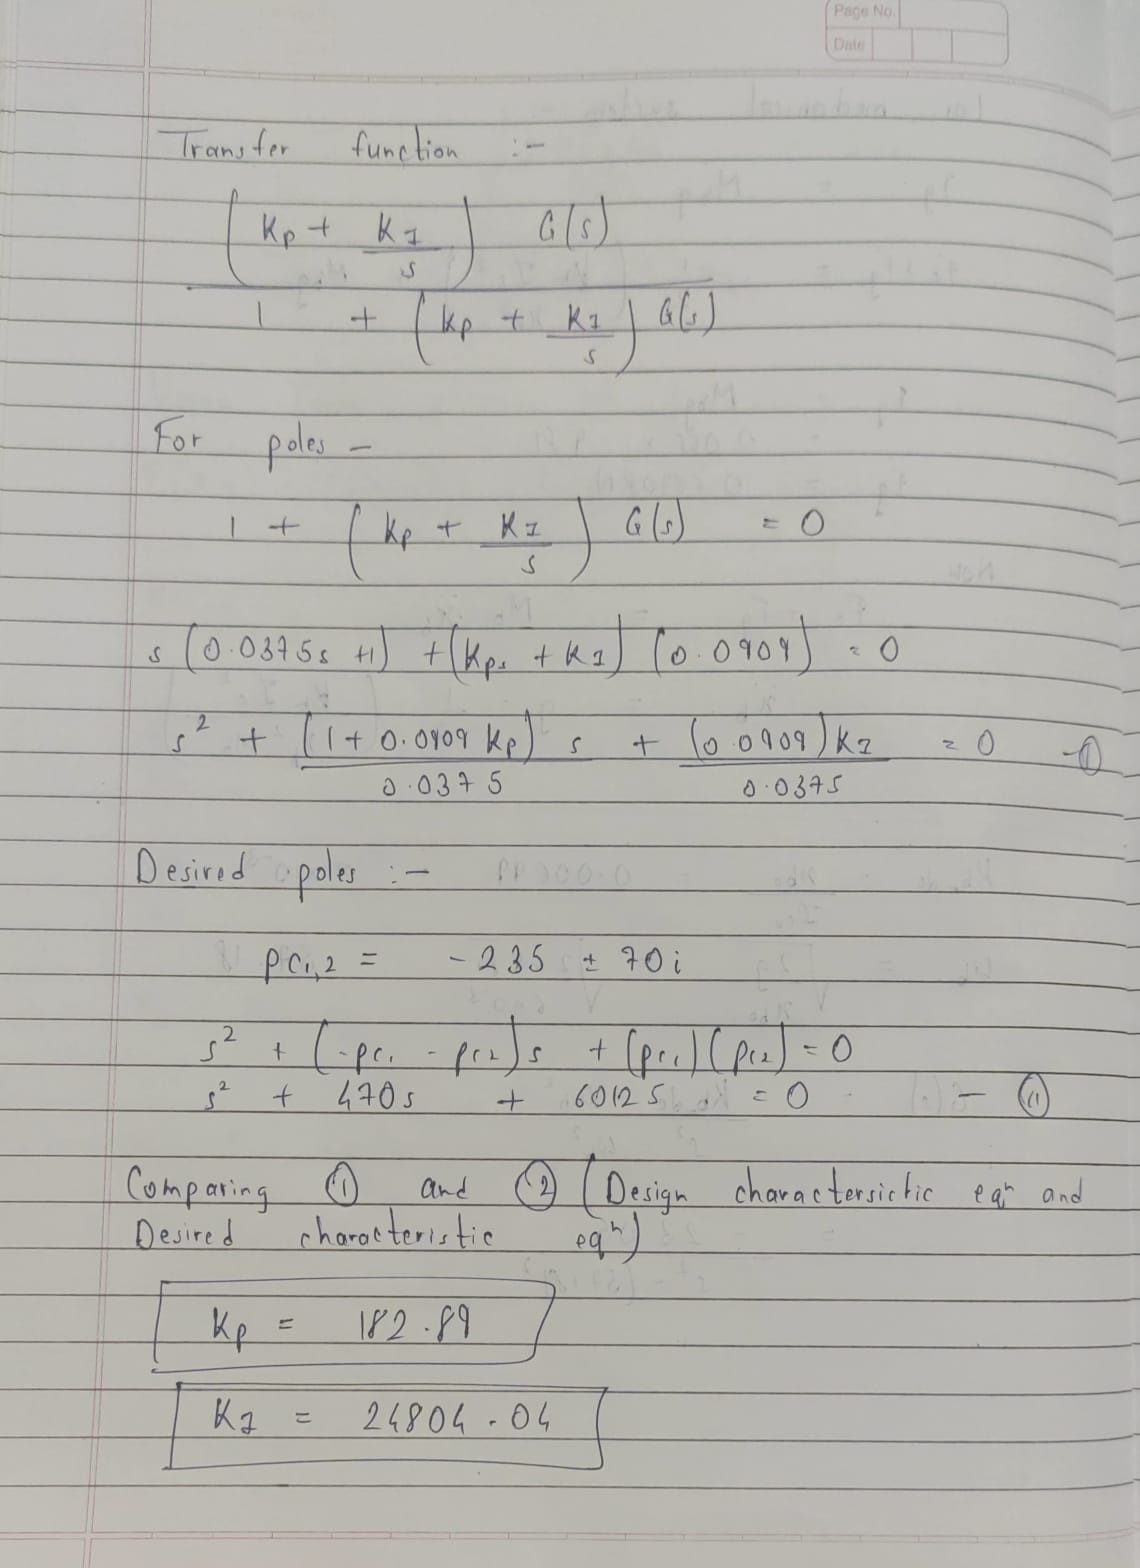 Page No.
Date
Transfer function :-
(Kp + KI/s) G(s)
1 + (Kp + KI/s) G(s)
For poles -
1 + (Kp + KI/s) G(s) = 0
s (0.0375s +1) + (Kps + KI) (0.0909) = 0
s² + (1 + 0.0909 Kp)/0.0375 s + (0.0909)KI/0.0375 = 0 -①
Desired poles :-
pc1,2 = -235 ± 70i
s² + (-pc1 - pc2)s + (pc1)(pc2) = 0
s² + 470s + 60125 = 0 - ⑪
Comparing ① and ② (Design charactersictic eqⁿ and
Desired characteristic eqⁿ)
Kp = 182.89
KI = 24804.04